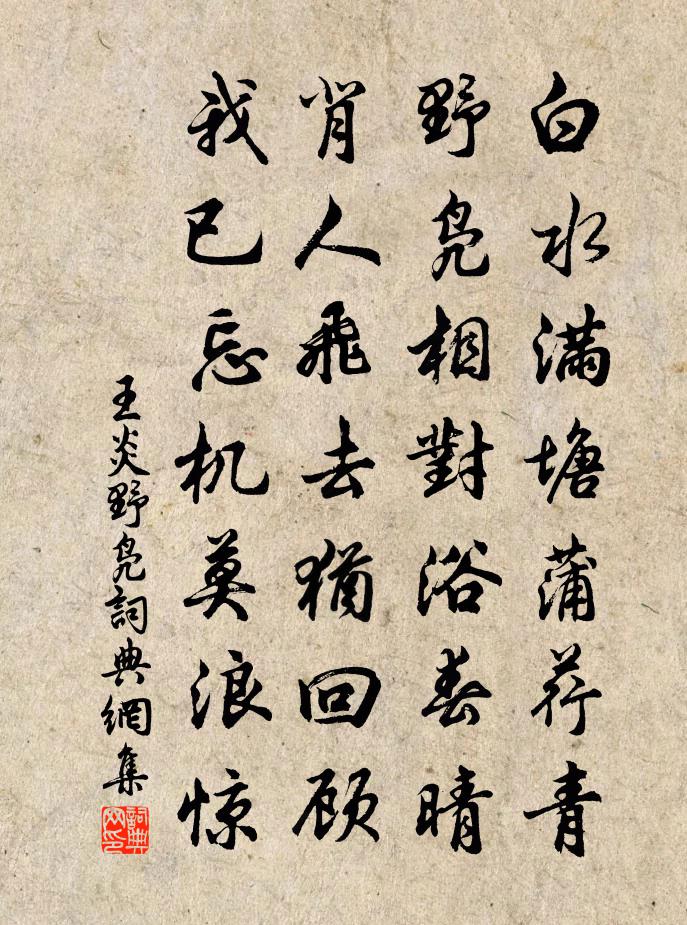 白水满塘蒲荇青
野凫相對浴春晴
背人飛去猶回顾
我已忘机莫浪惊
王炎野凫詞典網集
詞典网印